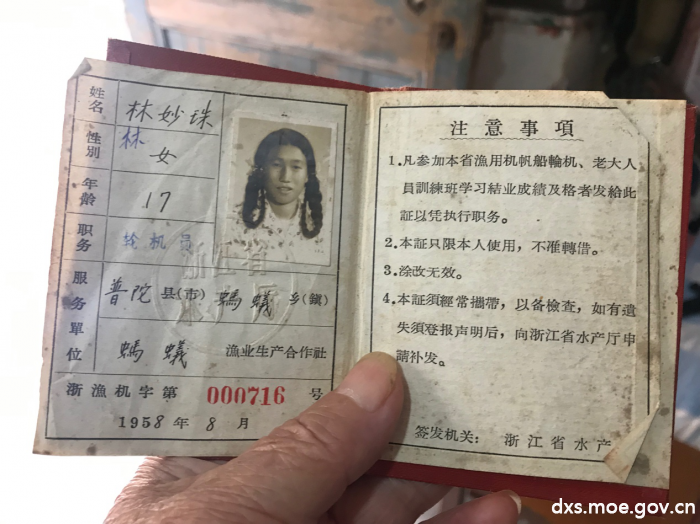 姓名 林妙珠
林
性別 女
年龄 17
职务 轮机员
服务單位 普陀县(市) 螞蟻 乡(鎮)
螞蟻 渔业生产合作社
浙漁机字第 000716 号
1958年8月
浙江省
注意事項
1.凡参加本省漁用机帆船輪机、老大人
員訓練班学习結业成績及格者发給此
証以凭执行职务。
2.本証只限本人使用，不准轉借。
3.涂改无效。
4.本証須經常攜帶，以备檢查，如有遺
失須登报声明后，向浙江省水产厅申
請补发。
签发机关： 浙江省水产
dxs.moe.gov.cn